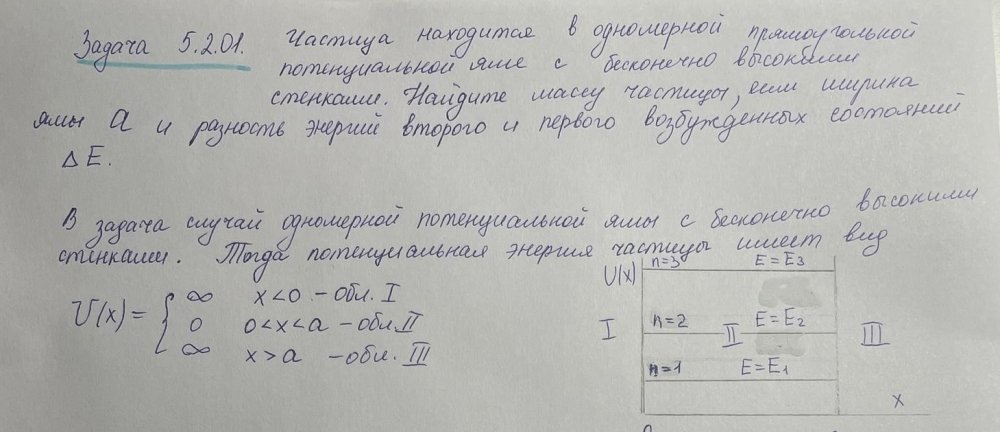 Задача 5.2.01. Частица находится в одномерной прямоугольной
потенциальной яме с бесконечно высокими
стенками. Найдите массу частицы, если ширина
ямы a и разность энергий второго и первого возбужденных состояний
ΔE.
В задача случай одномерной потенциальной ямы с бесконечно высокими
стенками. Тогда потенциальная энергия частицы имеет вид
U(x) = { ∞ x < 0 - обл. I
0 0 < x < a - обл. II
∞ x > a - обл. III
U(x) n=3 E = E3
I n=2 II E = E2 III
n=1 E = E1
x